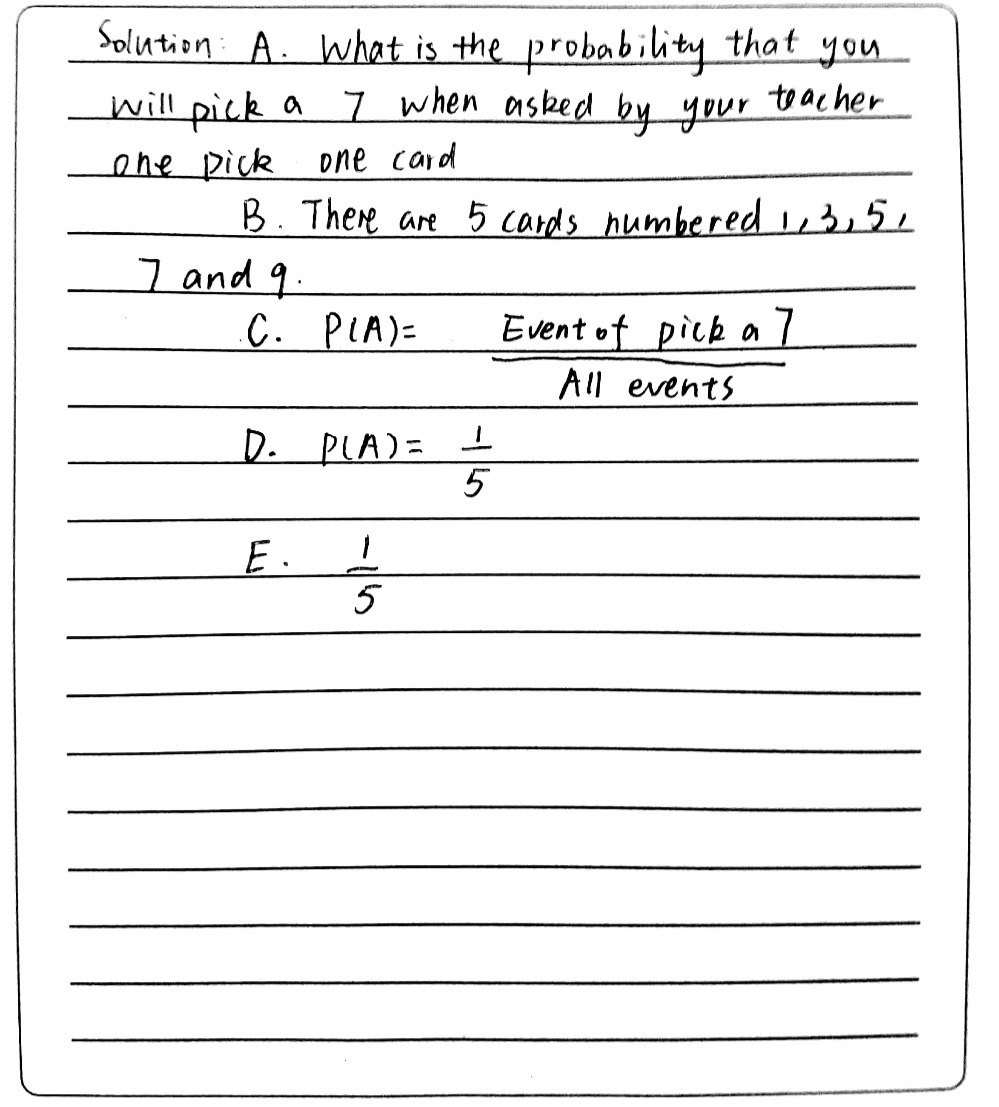 Solution: A. What is the probability that you
will pick a 7 when asked by your teacher
one pick one card
B. There are 5 cards numbered 1, 3, 5,
7 and 9.
C. P(A)= Event of pick a 7
All events
D. P(A)= 1
5
E. 1
5